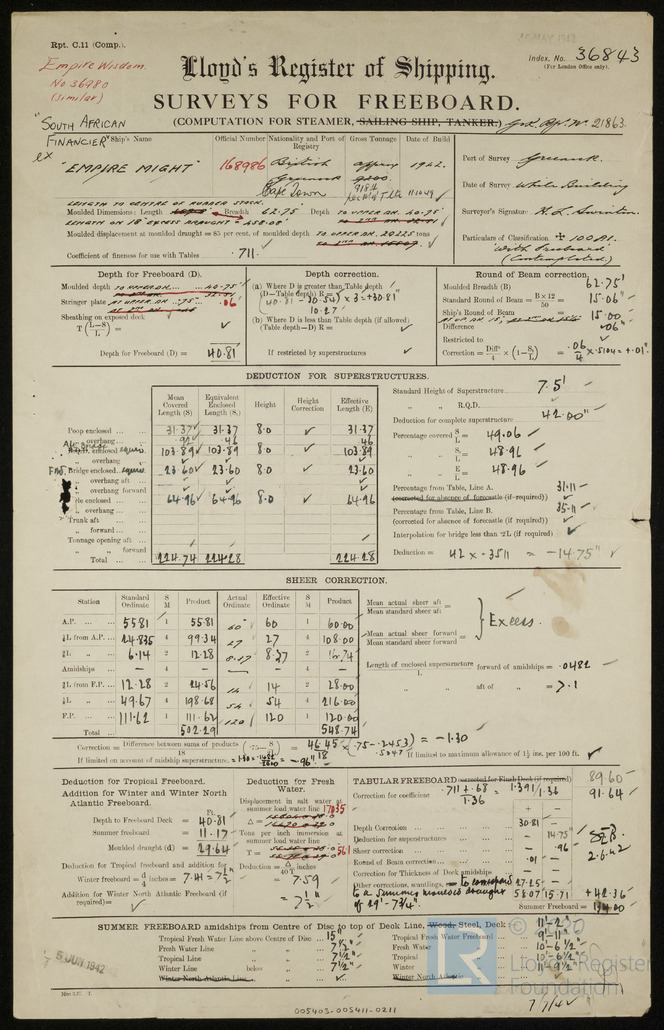 Rpt. C.11 (Comp.).
Empire Wisdom
No 36980
(Similar)
Index. No. 36843
(For London Office only).
Lloyd's Register of Shipping.
SURVEYS FOR FREEBOARD.
(COMPUTATION FOR STEAMER, SAILING SHIP, TANKER.)
21863
"SOUTH AFRICAN
FINANCIER"
ex
Ship's Name
Official Number
Nationality and Port of Registry
Gross Tonnage
Date of Build
"EMPIRE MIGHT"
168986
British
Greenock
Cape Town
1942
Port of Survey Greenock
Date of Survey While Building
Surveyor's Signature
Particulars of Classification ✠ 100 A1.
"With Freeboard"
(Contemplated)
LENGTH TO CENTRE OF RUDDER STOCK.
Moulded Dimensions: Length Breadth 62.75 Depth TO UPPER DK. 40.75'
Moulded displacement at moulded draught = 85 per cent. of moulded depth TO UPPER DK. 20225 tons
Coefficient of fineness for use with Tables .711
Depth for Freeboard (D).
Moulded depth TO UPPER DK. 40.75'
Stringer plate .06'
Sheathing on exposed deck
T (L-S/L) =
Depth for Freeboard (D) = 40.81'
Depth correction.
(a) Where D is greater than Table depth
(D—Table depth) R =
(40.81 - 30.54) × 3 = +30.81"
10.27'
(b) Where D is less than Table depth (if allowed)
(Table depth—D) R =
If restricted by superstructures
Round of Beam correction.
Moulded Breadth (B) 62.75'
Standard Round of Beam = B×12/50 = 15.06"
Ship's Round of Beam = 15.00
Difference .06"
Restricted to
Correction = Diff/4 × (1-S/L) = .06/4 × .5104 = +.01"
DEDUCTION FOR SUPERSTRUCTURES.
Mean Covered Length (S)
Equivalent Enclosed Length (S₁)
Height
Height Correction
Effective Length (E)
Poop enclosed 31.37 31.37 8.0 31.37
" overhang .92 .46 .46
enclosed 103.89 103.89 8.0 103.89
" overhang
Bridge enclosed 23.60 23.60 8.0 23.60
" overhang aft
" overhang forward
enclosed 64.96 64.96 8.0 64.96
" overhang
Trunk aft
" forward
Tonnage opening aft
" " forward
Total 224.74 224.28 224.28
Standard Height of Superstructure 7.5'
" " R.Q.D.
Deduction for complete superstructure 42.00"
Percentage covered S/L = 49.06
" " S₁/L = 48.96
" " E/L = 48.96
Percentage from Table, Line A. 35.11
(corrected for absence of forecastle (if required))
Percentage from Table, Line B. 35.11
(corrected for absence of forecastle (if required))
Interpolation for bridge less than ·2L (if required)
Deduction = 42 × .3511 = -14.75"
SHEER CORRECTION.
Station
Standard Ordinate
S M
Product
Actual Ordinate
Effective Ordinate
S M
Product
A.P. 55.81 1 55.81 60 60 1 60.00
⅙L from A.P. 24.835 4 99.34 27 27 4 108.00
⅓L " 6.14 2 12.28 8.37 8.37 2 16.74
Amidships — 4 — — 4 —
⅓L from F.P. 12.28 2 24.56 14 14 2 28.00
⅙L " 49.67 4 198.68 54 54 4 216.00
F.P. 111.62 1 111.62 120 120 1 120.00
Total 502.29 548.74
Mean actual sheer aft =
Mean standard sheer aft
Mean actual sheer forward =
Mean standard sheer forward
} Excess.
Length of enclosed superstructure forward of amidships = .0482
L
" " aft of " = >.1
Correction = Difference between sums of products/18 (.75 - S/2L) = 46.45/18 × (.75 - .2453) = -1.30
If limited on account of midship superstructure. = -.96"
If limited to maximum allowance of 1½ ins. per 100 ft.
Deduction for Tropical Freeboard.
Addition for Winter and Winter North
Atlantic Freeboard.
Ft.
Depth to Freeboard Deck = 40.81
Summer freeboard = 11.17
Moulded draught (d) = 29.64
Deduction for Tropical freeboard and addition for
Winter freeboard = d/4 inches = 7.41 = 7½"
Addition for Winter North Atlantic Freeboard (if
required) =
Deduction for Fresh
Water.
Displacement in salt water at
summer load water line 17035
Δ =
Tons per inch immersion at
summer load water line
T =
Deduction = Δ/40T inches
= 7.59
= 7½"
TABULAR FREEBOARD corrected for Flush Deck (if required) 89.60
Correction for coefficient .711+.68/1.36 = 1.391/1.36 91.64
+ −
Depth Correction 30.81 —
Deduction for superstructures — 14.75
Sheer correction — .96
Round of Beam correction .01 —
Correction for Thickness of Deck amidships — —
Other corrections, scantlings, to correspond 27.25
to a summer moulded draught 58.07 15.71 +42.36
of 29'-7¾".
Summer Freeboard = 134.00
2.6.42
SUMMER FREEBOARD amidships from Centre of Disc to top of Deck Line, Wood, Steel, Deck
Tropical Fresh Water Line above Centre of Disc 15"
Fresh Water Line " " 7½"
Tropical Line " " 7½"
Winter Line below " 7½"
Winter North Atlantic Line " "
11'-2"
Tropical Fresh Water Freeboard 9'-11"
Fresh Water " 10'-6½"
Tropical " 10'-6½"
Winter " 11'-9½"
Winter North Atlantic "
5 JUN 1942
© 2020
LR
Lloyd's Register
Foundation
005403-005411-0211